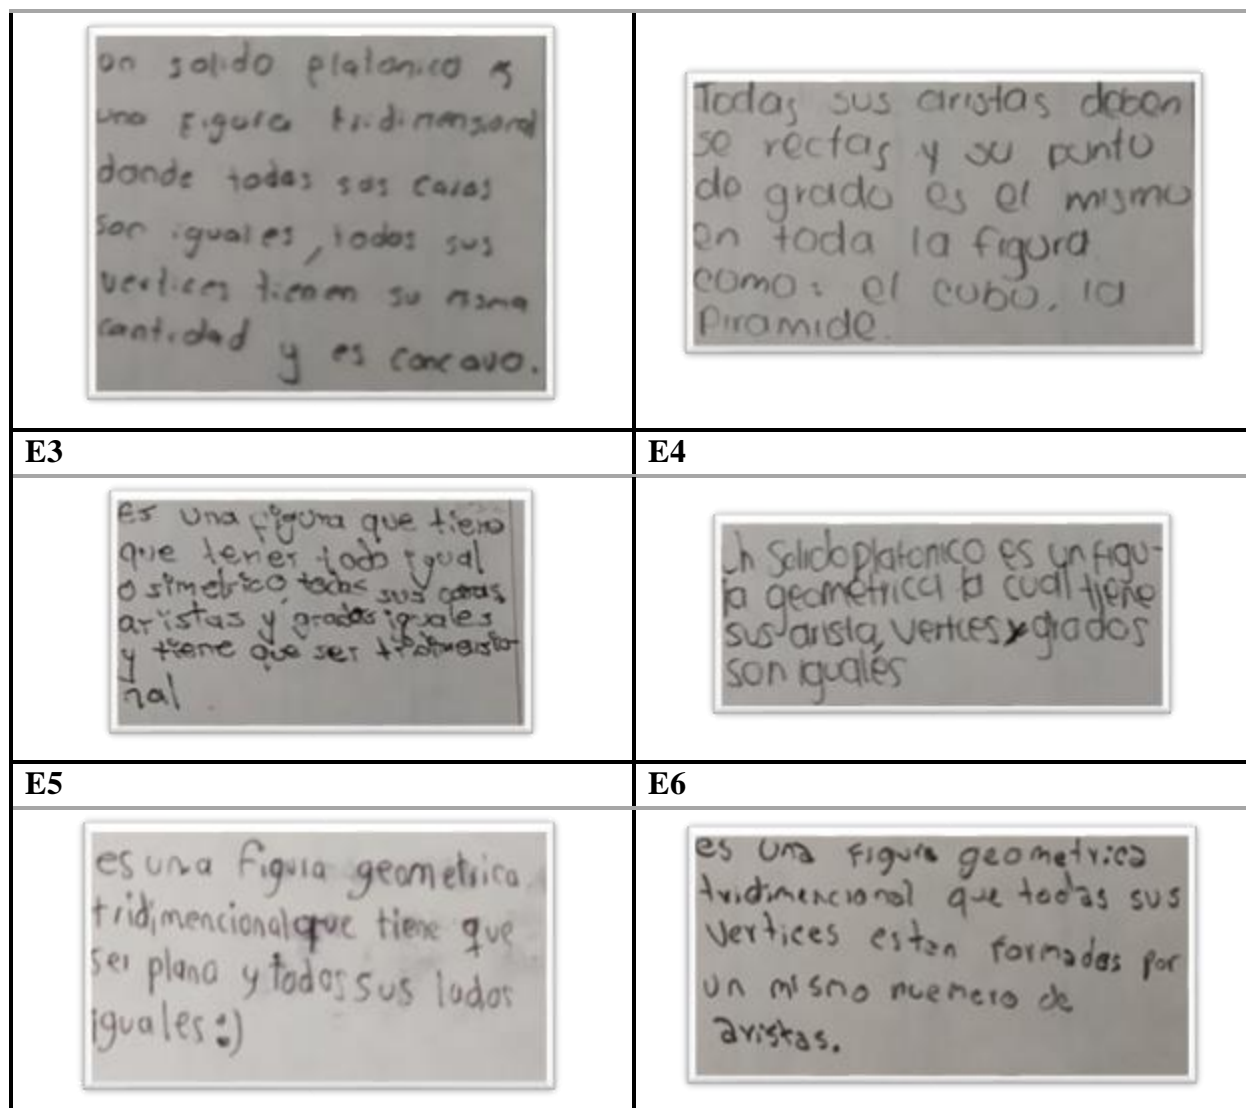 un solido platonico es
una figura tridimensional
donde todas sus caras
son iguales, todos sus
vertices tienen su misma
cantidad y es concavo.
Todas sus aristas deben
se rectas y su punto
de grado es el mismo
en toda la figura
como: el cubo, la
Piramide.
E3
E4
Es una figura que tiene
que tener todo igual
o simetrico, todas sus caras
aristas y grados iguales
y tiene que ser tridimensio
nal
Un Solido platonico es un figu-
ra geométrica la cual tiene
sus arista, vertices y grados
son iguales
E5
E6
es una figura geometrica
tridimencional que tiene que
ser plana y todos sus lados
iguales :)
es una figura geometrica
tridimencional que todas sus
vertices estan formadas por
un mismo nuemero de
aristas.